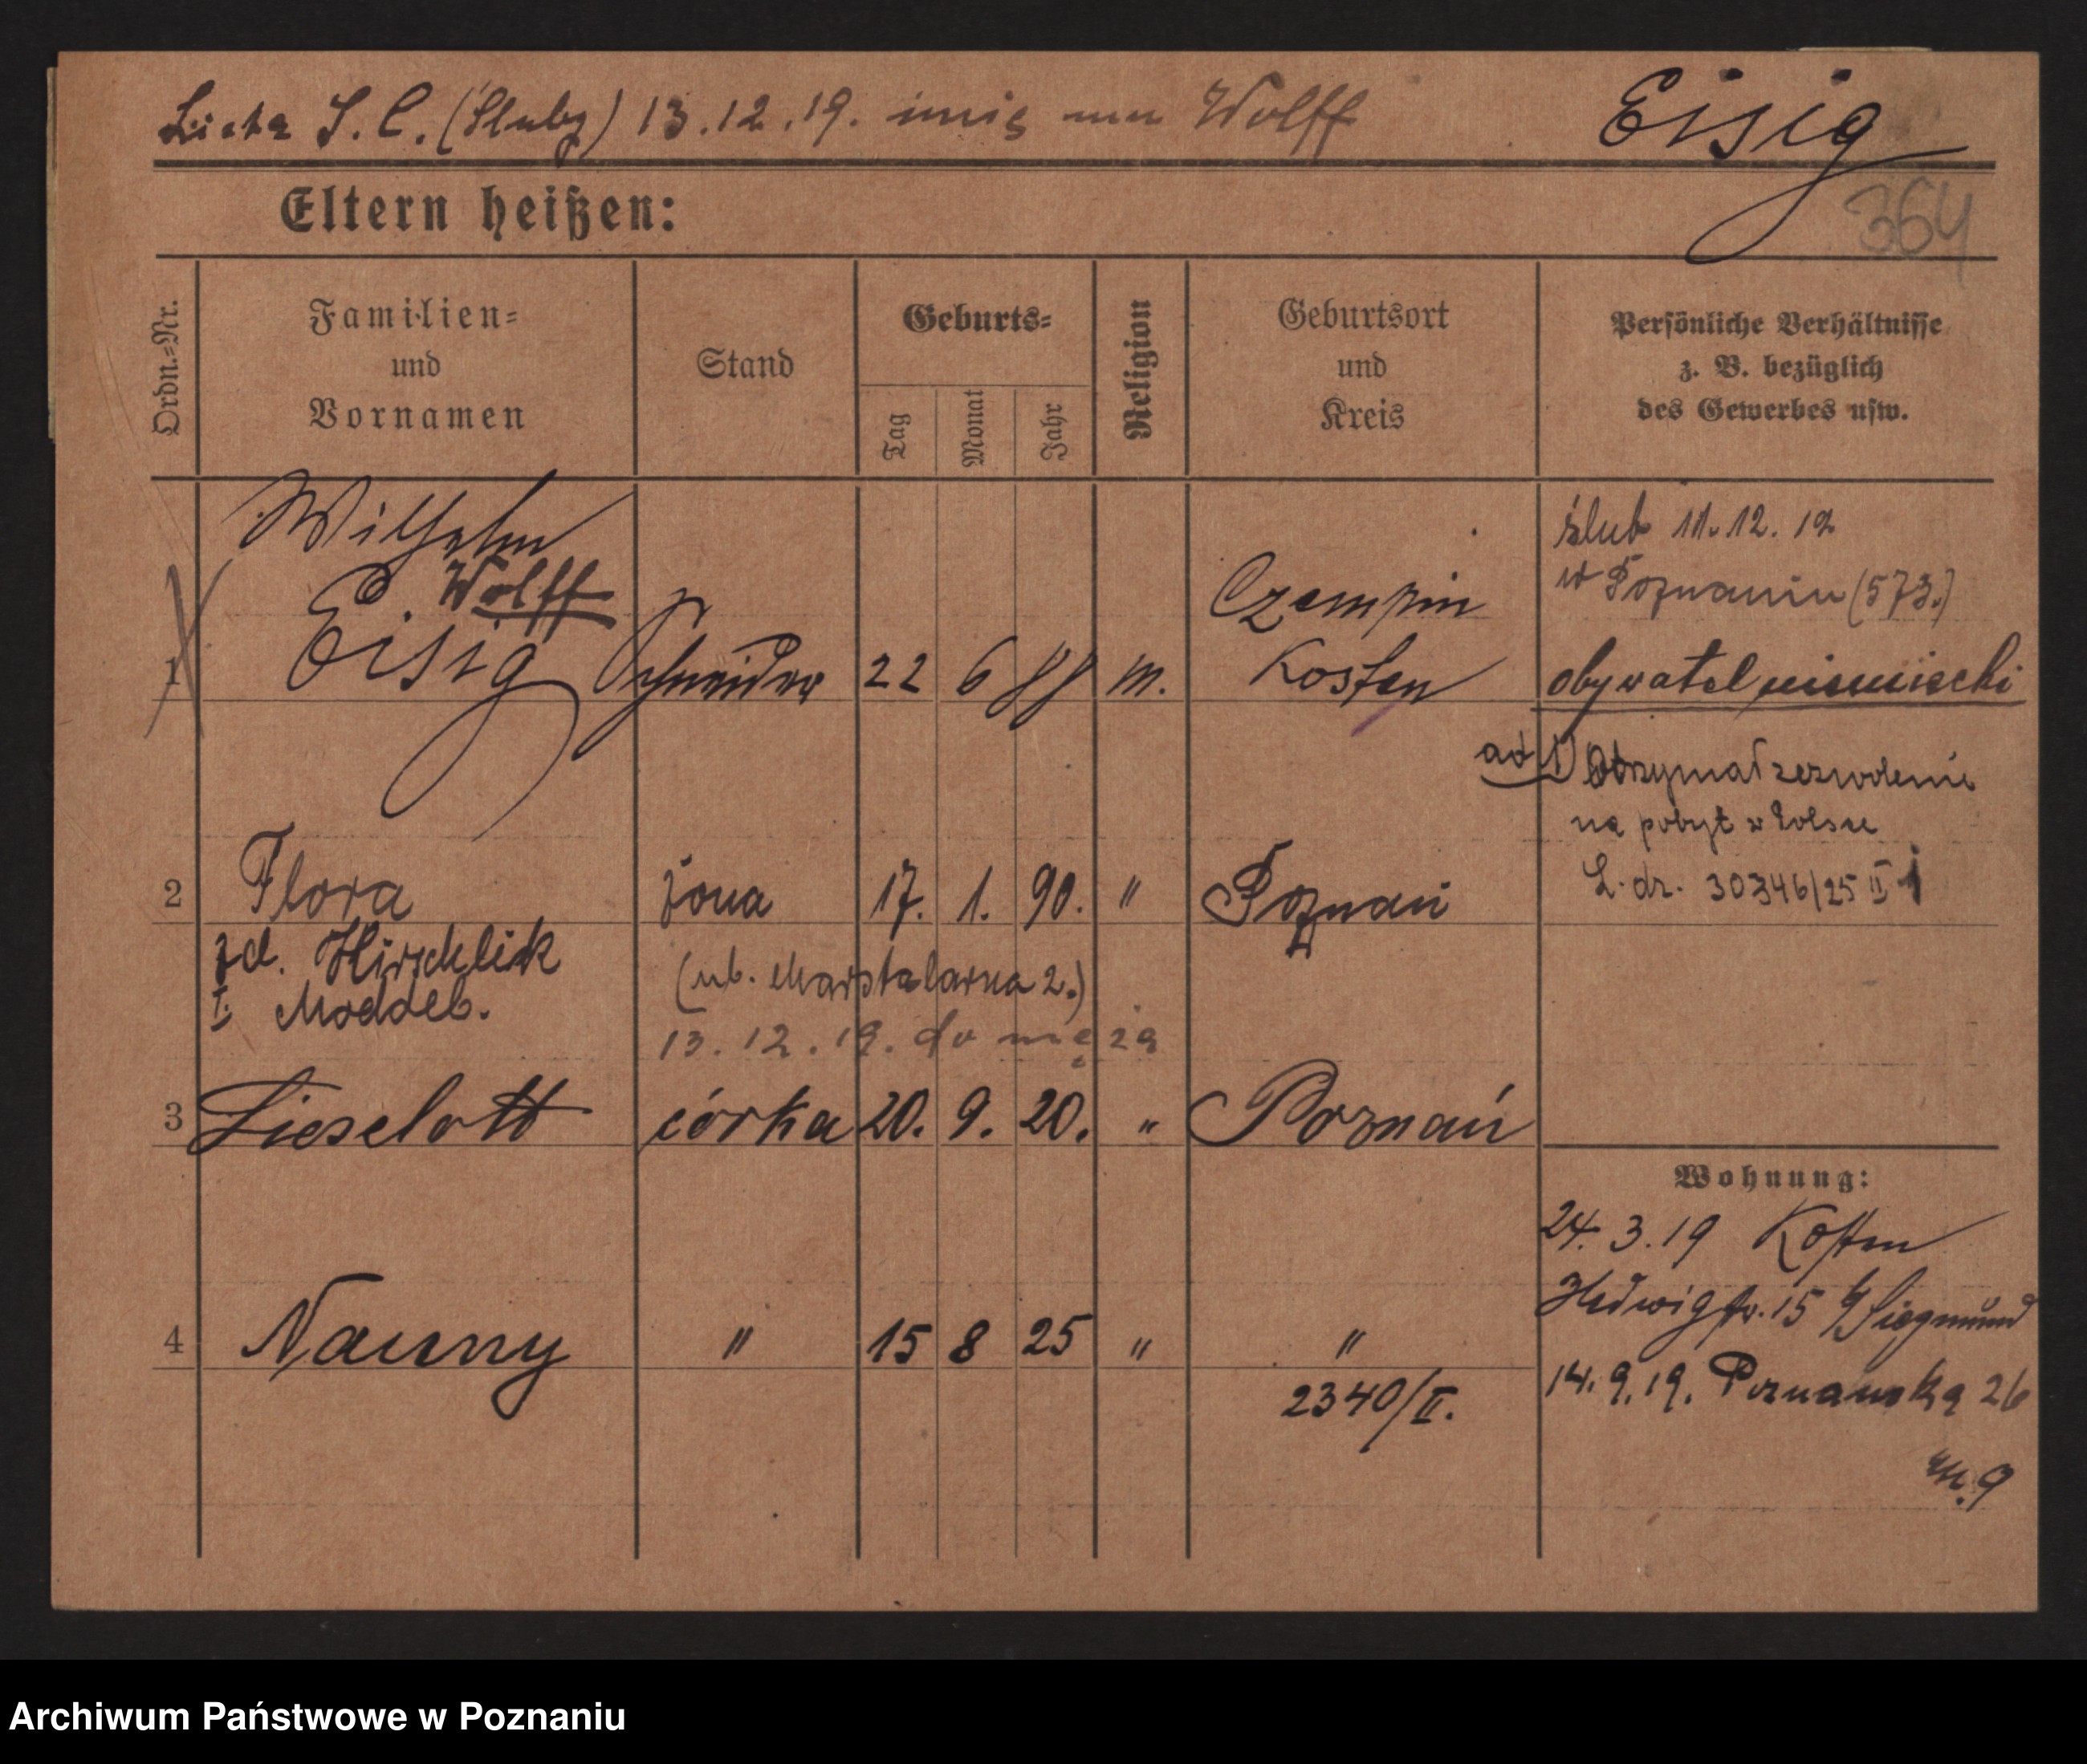 Lista S. C. (Śluby) 13.12.19. imię ma Wolff
Eisig
364
Eltern heißen:
Ordn.=Nr.
Familien=
und
Vornamen
Stand
Geburts=
Tag
Monat
Jahr
Religion
Geburtsort
und
Kreis
Persönliche Verhältnisse
z. B. bezüglich
des Gewerbes usw.
1
Wilhelm
Wolff
Eisig Schneider 22 6 88 m. Czempin
Kosten
ślub 11.12.19
w Poznaniu (573.)
obywatel niemiecki
ad 1) Otrzymał zezwolenie
na pobyt w Polsce
L. dz. 30346/25 II
2 Flora żona 17. 1. 90. " Poznań
zd. Hirschlik
I. Moddeb.
(ub. Marstalarna 2.)
13.12.19. do męża
3 Lieselott córka 20. 9. 20. " Poznań
4 Nanny " 15 8 25 " "
2340/II.
Wohnung:
24.3.19 Kosten
Hedwigstr. 15 b/Siegmund
14.9.19. Poznańska 26
m. 9
Archiwum Państwowe w Poznaniu